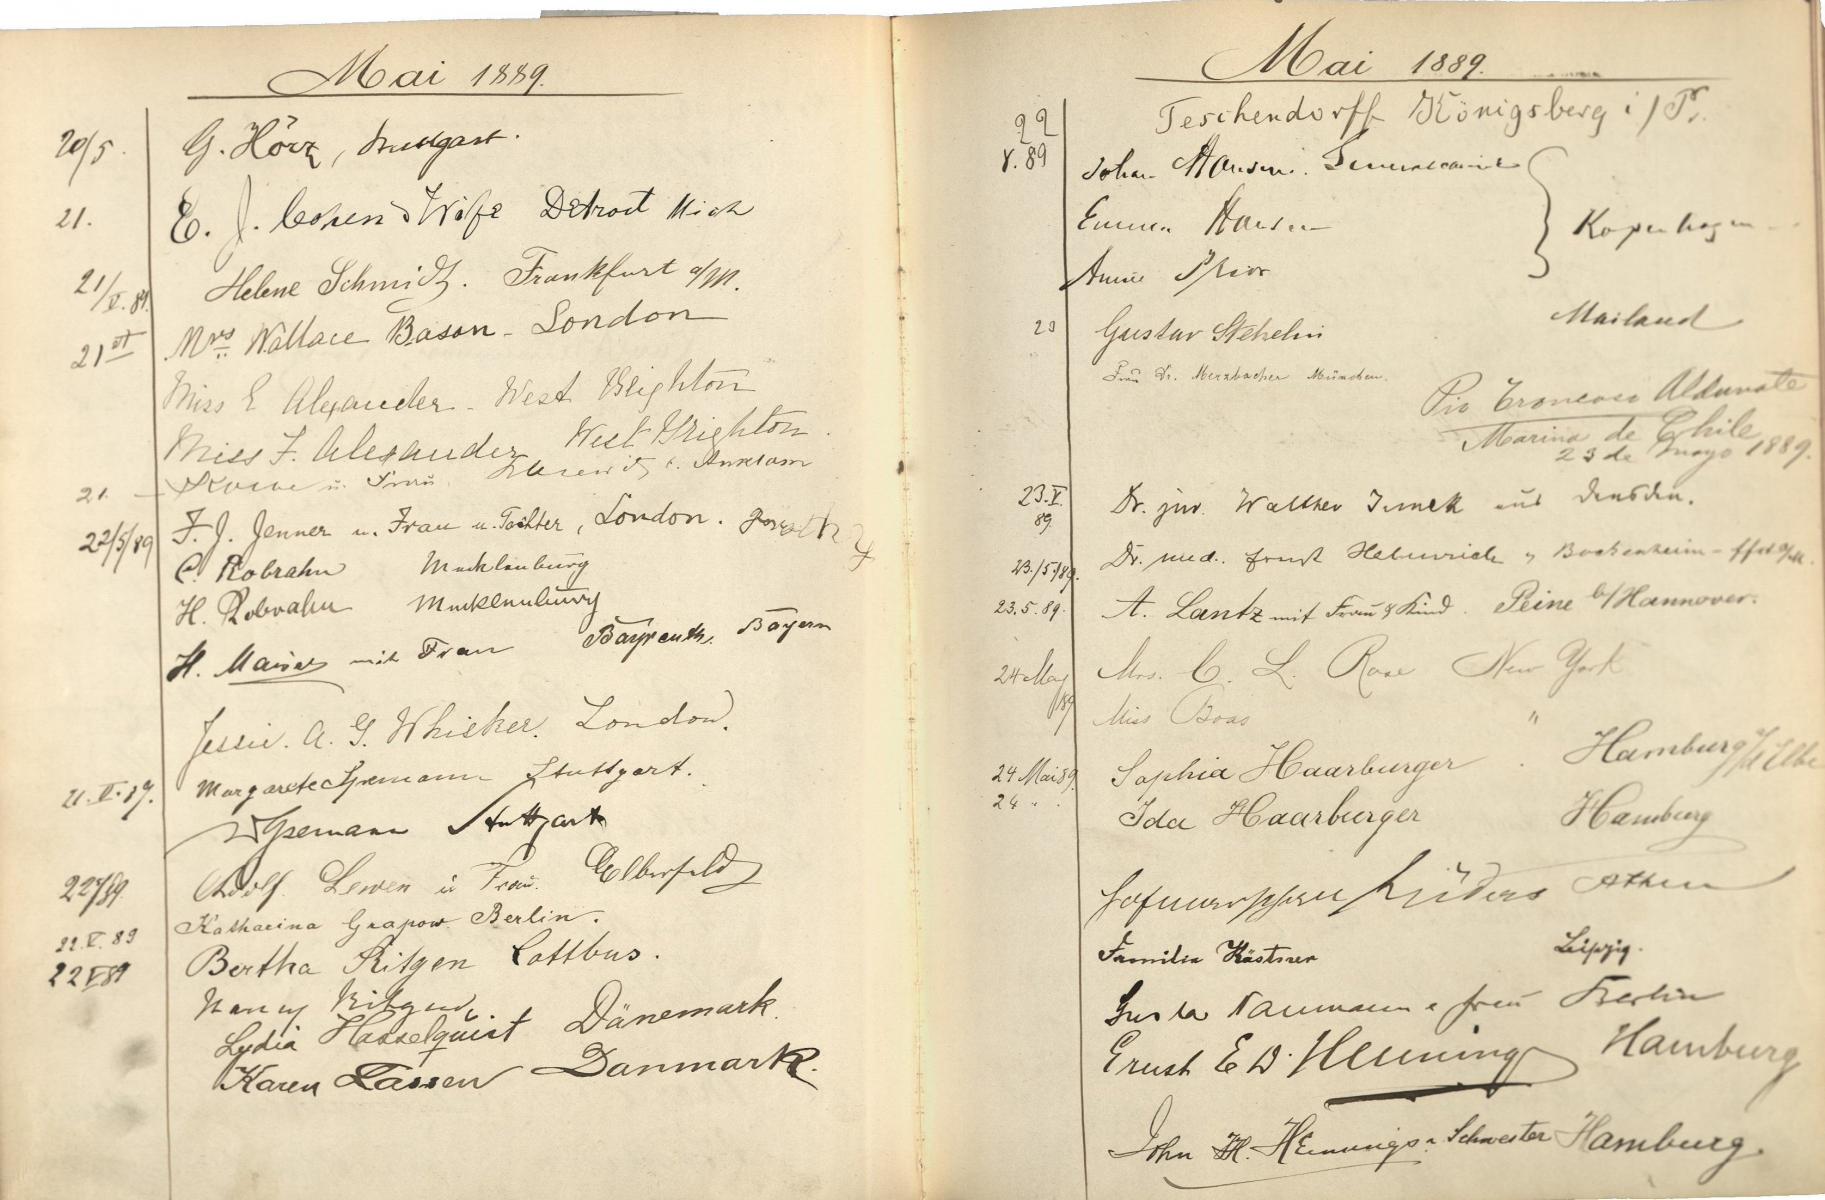 Mai 1889.
20/5. G. Hörz, Stuttgart.
21. E. J. Cohen & Wife Detroit Mich
21/V. 89. Helene Schmidt. Frankfurt a/M.
21st Mrs Wallace Bason - London
Miss E Alexander - West Brighton
Miss F. Alexander West Brighton.
21. u. Frau Anklam
22/5/89 F. J. Jenner u. Frau u. Tochter, London.
C. Robrahn Mecklenburg
H. Robrahn Mecklenburg
H. Maier mit Frau Bayreuth. Bayern
Jessie. A. G. Whicker. London.
21. V. 89. Margarete Spemann Stuttgart.
W Spemann Stuttgart
22/5/89 Adolf Lewen u Frau. Elberfeld
22. V. 89 Katharina Grapow Berlin.
22 V 89 Bertha Ritgen Cottbus.
Nancy Ritgen
Lydia Hasselquist Dänemark.
Karen Lassen Danmark.
Mai 1889.
22 Teschendorff Königsberg i/Pr.
V. 89 Johan Hansen.
Emma Hansen Kopenhagen
Annie Prior
23 Gustav Stehelin Mailand
Frau Dr. Merzbacher München.
Pio Troncoso Aldunate
Marina de Chile
23 de Mayo 1889.
23. V. 89. Dr. jur. Walther aus Dresden.
23./5./89. Dr. med. Ernst Bockenheim - Ffrt a/M.
23. 5. 89. A. Lantz mit Frau & Kind. Peine b/Hannover.
24 May /89 Mrs. C. L. Rose New York
Miss Boas "
24 Mai 89. Sophia Haarburger. Hamburg a/d Elbe
24 " . Ida Haarburger Hamburg
Lüders Athen
Familie Kästner Leipzig.
Naumann & Frau Berlin
Ernst E D. Henning Hamburg
John H. Hennings & Schwester Hamburg.